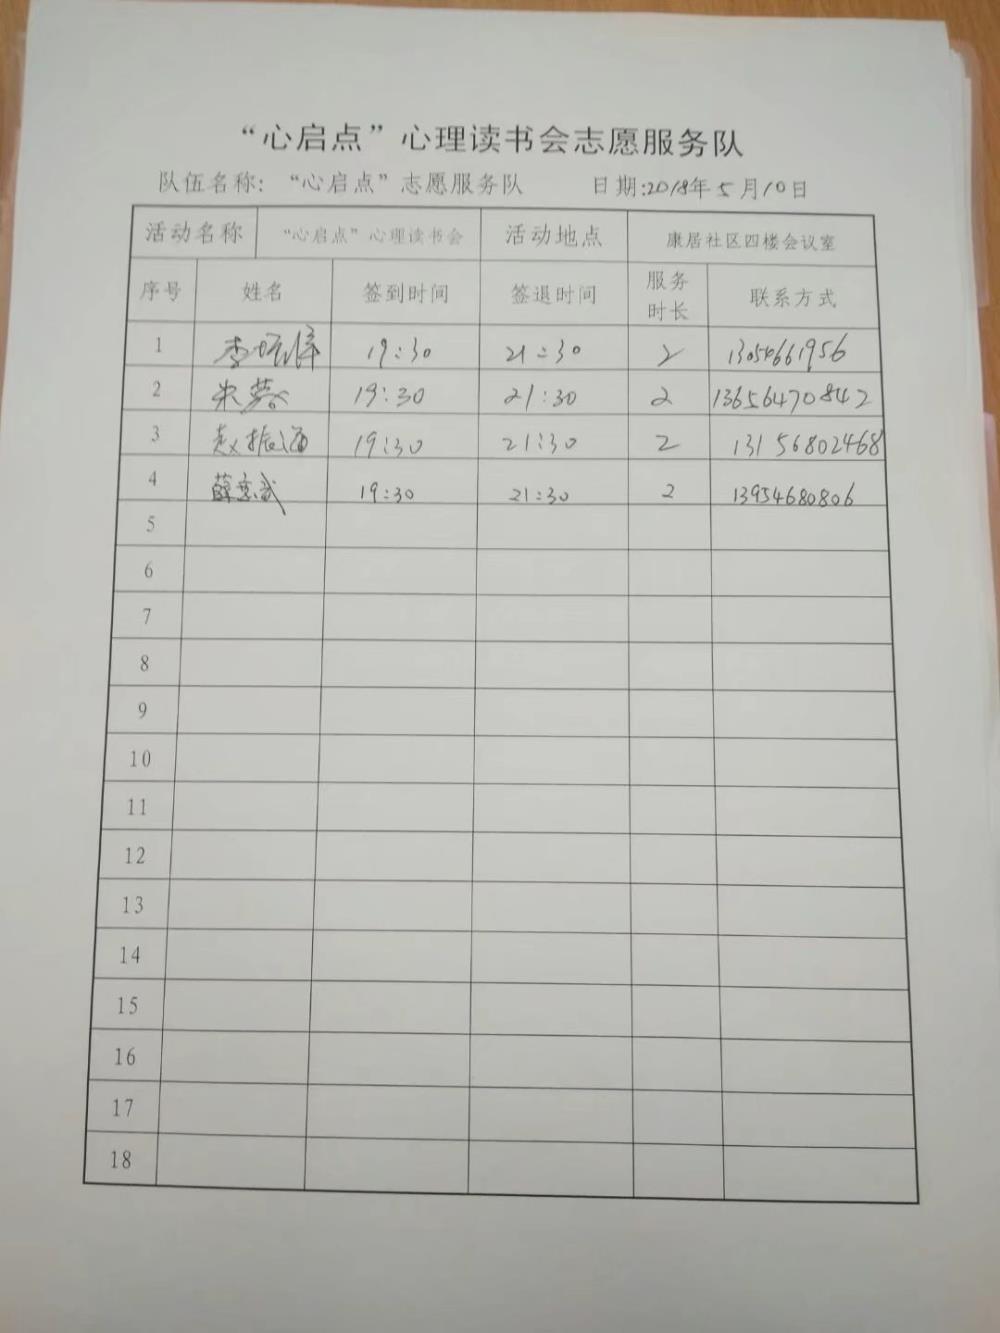 “心启点”心理读书会志愿服务队
队伍名称：“心启点”志愿服务队 日期:2018年5月10日
活动名称 “心启点”心理读书会 活动地点 康居社区四楼会议室
序号 姓名 签到时间 签退时间 服务时长 联系方式
1 李 19:30 21:30 2 13054661956
2 朱 19:30 21:30 2 13656470842
3 赵振海 19:30 21:30 2 13156802468
4 薛 武 19:30 21:30 2 13954680806
5
6
7
8
9
10
11
12
13
14
15
16
17
18